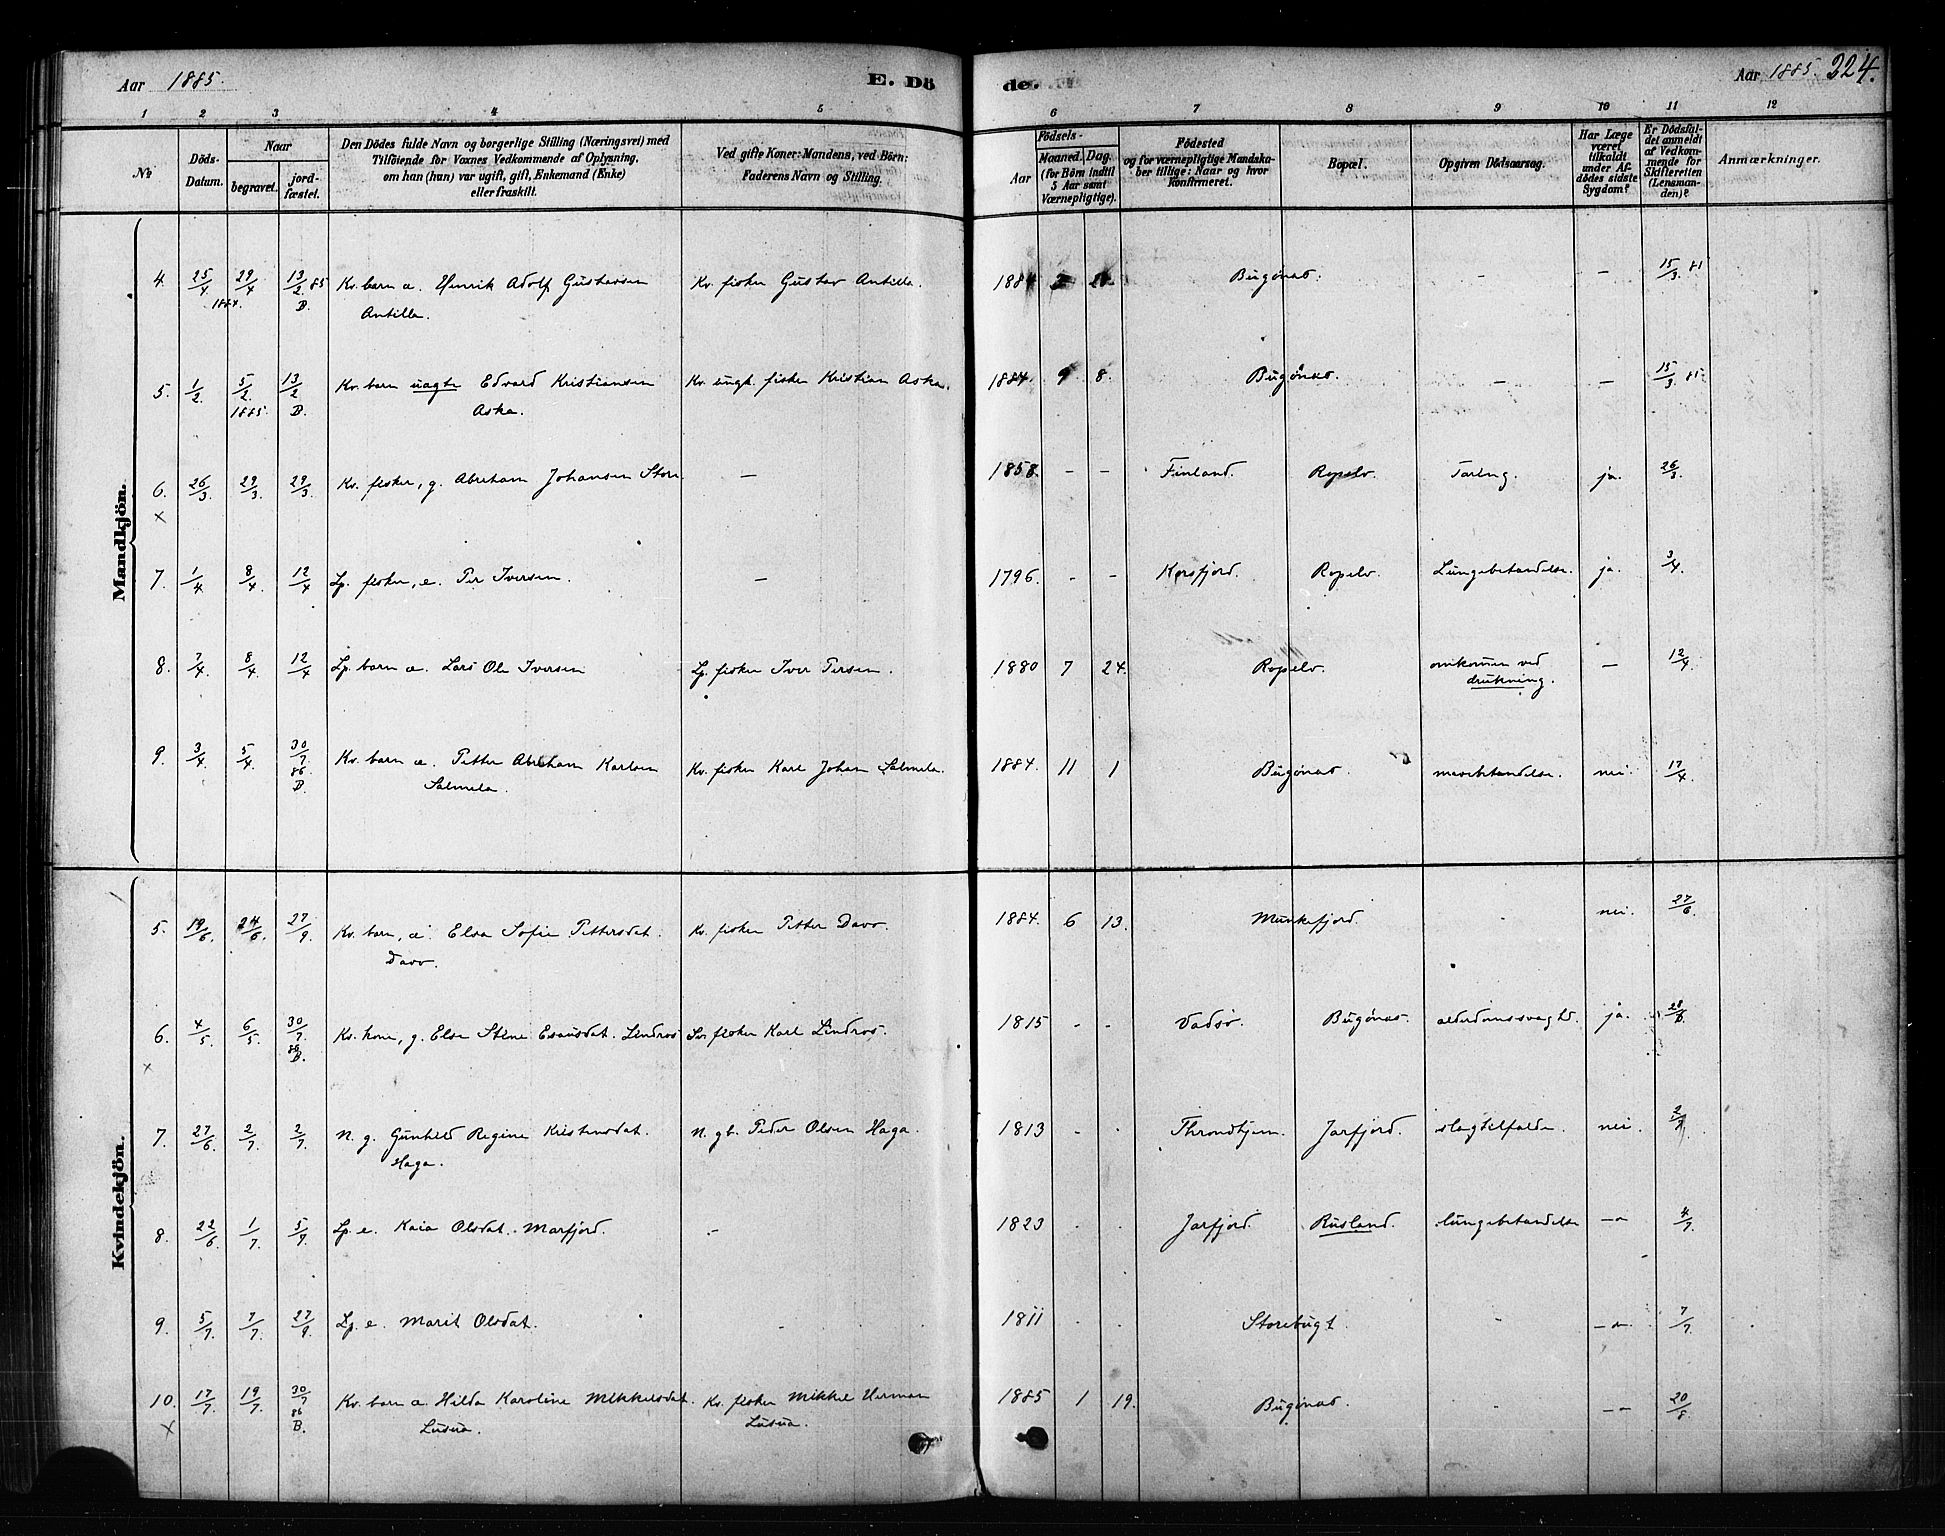 Aar 1885. E. Dö
de. Aar 1885. 324.
1 2 3 4 5
6 7 8 9 10 11 12
No Döds-Datum. Naar begravet. jord-fæstet. Den Dödes fulde Navn og borgerlige Stilling (Næringsvei) med Tilföiende for Voxnes Vedkommende af Oplysning, om han (hun) var ugift, gift, Enkemand (Enke) eller fraskilt. Ved gifte Koner: Mandens, ved Börn: Faderens Navn og Stilling.
Födsels- Aar Maaned. Dag. (for Börn indtil 5 Aar samt Værnepligtige). Födested og for værnepligtige Mandska-ber tillige: Naar og hvor Konfirmeret. Bopæl. Opgiven Dödsaarsag. Har Læge været tilkaldt under Af-dödes sidste Sygdom? Er Dödsfal-det anmeldt af Vedkom-mende for Skifteretten (Lensman-den)? Anmærkninger.
Mandkjön.
4. 25/4 29/4 13/2 85 Kv. barn æ. Henrik Adolf Gustavsen Kv. fisker Gustav Antilla. 1884 Bugönæs. - - 15/3 85
1884. D. Antilla.
5. 1/2. 5/2. 13/2 Kv. barn uægte Edvard Kristiansen Kv. ungk. fisker Kristian Aska. 1884. 9 8. Bugönæs. - - 15/3 85.
1885. D. Aska.
6. 26/3 29/3. 29/3. Kv. fisker, g. Abraham Johansen Store - 1858. - - Finland. Ropelv. Tæring. ja. 26/3.
x
7. 1/4 8/4 12/4 Lp. fisker, e. Per Iversen. - 1796. - - Korsfjord. Ropelv. Lungebetændelse. ja. 3/4.
8. 7/4 8/4 12/4 Lp. barn æ. Lars Ole Iversen Lp. fisker Iver Persen. 1880 7 24. Ropelv. omkommen ved - 12/4
drukning.
9. 3/4. 5/4. 30/7 86. D. Kv. barn æ. Petter Abraham Karlsen Kv. fisker Karl Johan Salmela. 1884. 11 1 Bugönæs. mavebetændelse. nei. 17/4
Salmela.
Kvindekjön.
5. 19/6. 24/6. 27/9. Kv. barn, æ. Elsa Sofie Pettersdat. Kv. fisker Petter Davo. 1884. 6 13. Munkefjord. nei. 27/6
Davo.
6. 4/5 6/5 30/7 86 D. Kv. kone, g. Elsa Stine Esausdat. Lindros Sv. fisker Karl Lindros. 1815 - - Vadsø. Bugönæs. alderdomssvaghd. ja. 28/6
x
7. 27/6 2/7 2/7 N. g. Gunhild Regine Kristensdat. N. gb. Peder Olsen Haga. 1813 - - Throndhjem. Jarfjord. slagtilfælde. nei. 2/7
Haga.
8. 22/6 1/7. 5/7. Lp. e. Kaia Olsdat. Marfjord. - 1823 Jarfjord. Rusland. lungebetændelse - " - 4/7
9. 5/7. 7/7. 27/9. Lp. e. Marit Olsdat. - 1811 Storebugt. - - " - 7/7
10. 17/7. 19/7. 30/7 86 B. Kv. barn æ. Hilda Karoline Mikkelsdat. Kv. fisker Mikkel Herman 1885 1 19. Bugönæs. - - " - 20/8
x Lusua. Lusua.